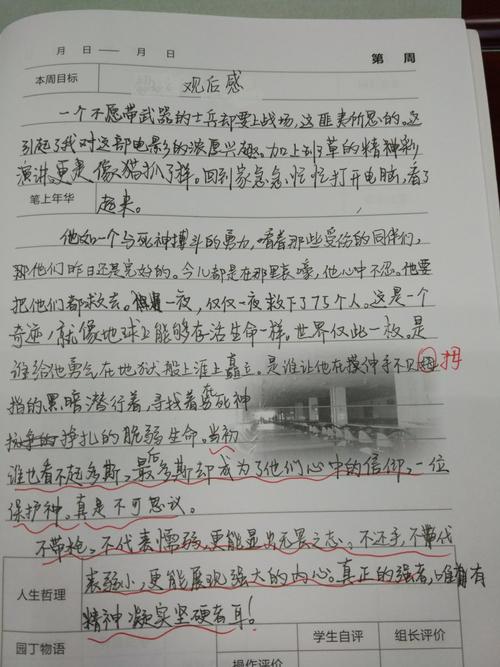 月 日 —— 月 日 第 周
本周目标 观后感
一个不愿带武器的士兵却要上战场,这匪夷所思的。这
引起了我对这部电影的浓厚兴趣。加上到了草的精神彩
演讲,更是像猫抓了样。回到家急急忙忙打开电脑,看了
笔上年华 起来。
他如一个与死神搏斗的勇力,看着那些受伤的同伴们,
那他们昨日还是完好的。今儿都是在那里哀嚎,他心中不忍。他要
把他们都救去。一夜,仅仅一夜救下了75个人。这是一个
奇迹,就像地球上能够存活生命一样。世界仅此一枚。是
谁给他勇气在地狱般上涯上矗立。是谁让他在伸手不见拇 拇
指的黑暗潜行着,寻找着在死神
挣扎的脆弱生命。当初
谁也看不起多斯,最后多斯却成为了他们心中的信仰,一位
保护神,真是不可思议。
不带枪,不代表懦弱,更能显出无畏之志。不还手,不带代
人生哲理 表弱小,更能展现强大的内心。真正的强者,唯有有
精神凝实坚硬者耳!
园丁物语 学生自评 组长评价
操作评价